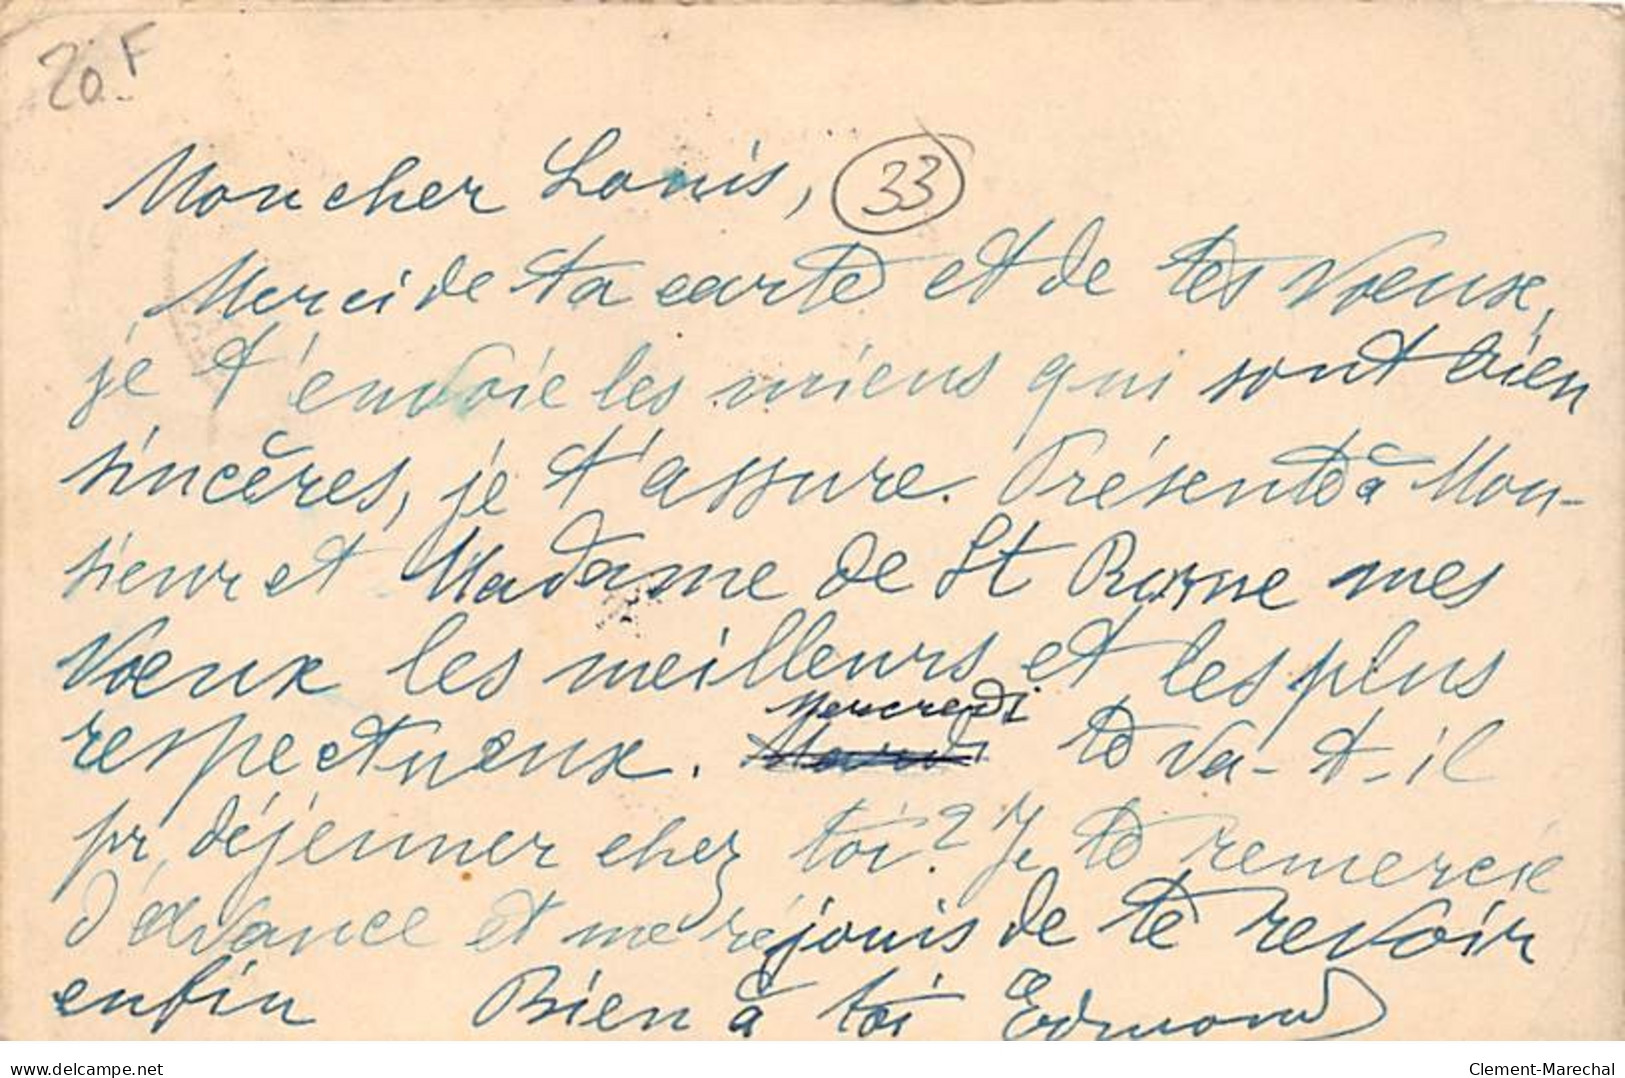 20 F
Mon cher Louis, 33
Merci de ta carte et de tes vœux,
je t'envoie les miens qui sont bien
sincères, je t'assure. Présente à Mon-
sieur et Madame de St mes
vœux les meilleurs et les plus
respectueux. Mercredi te va-t-il
pr déjeuner chez toi? Je te remercie
d'avance et me réjouis de te revoir
enfin Bien à toi Edmond
delcampe.net
Clement-Marechal